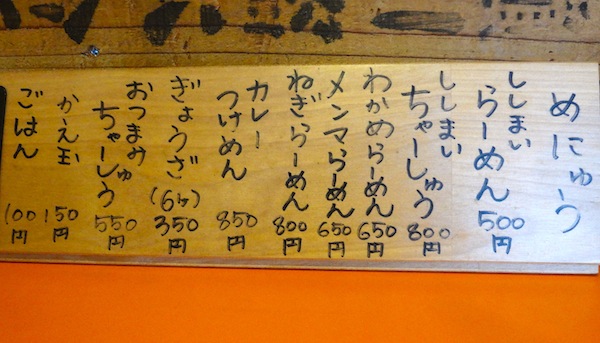 めにゅう
ししまい
らーめん 500円
ししまい
ちゃーしゅう 800円
わかめらーめん 650円
メンマらーめん 650円
ねぎらーめん 800円
カレー
つけめん 850円
ぎょうざ(6ヶ) 350円
おつまみ
ちゃーしゅう 550円
かえ玉 150円
ごはん 100円